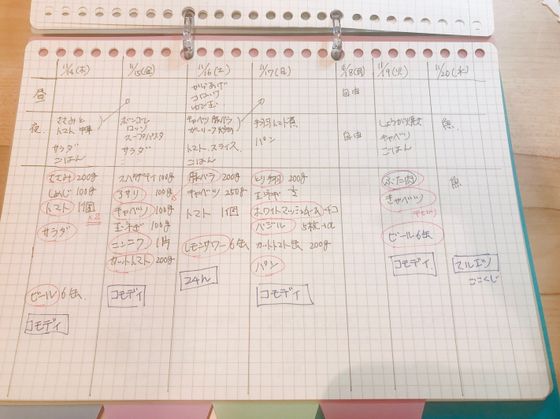 11/14(木)
11/15(金)
11/16(土)
11/17(日)
11/18(月)
11/19(火)
11/20(水)
昼
からあげ
自由
夜
むね肉と
トマト
サラダ
ごはん
スープパスタ
サラダ
キャベツ 豚バラ
トマト スライス
ごはん
手羽トマト煮
パン
自由
しょうが焼き
キャベツ
ごはん
魚
むね肉 200g
しめじ 100g
トマト 1個
サラダ
ビール 6缶
コモディ
スパゲティ 100g
アサリ 100g
キャベツ 100g
玉ネギ 100g
ニンニク 1片
カットトマト 200g
コモディ
豚バラ 200g
キャベツ 250g
トマト 1個
レモンサワー 6缶
とり手羽 200g
玉ネギ
ホワイトマッシュルーム 4コ
バジル 5枚
カットトマト缶 200g
パン
コモディ
ぶた肉
キャベツ
ビール 6缶
コモディ
魚
マルエツ